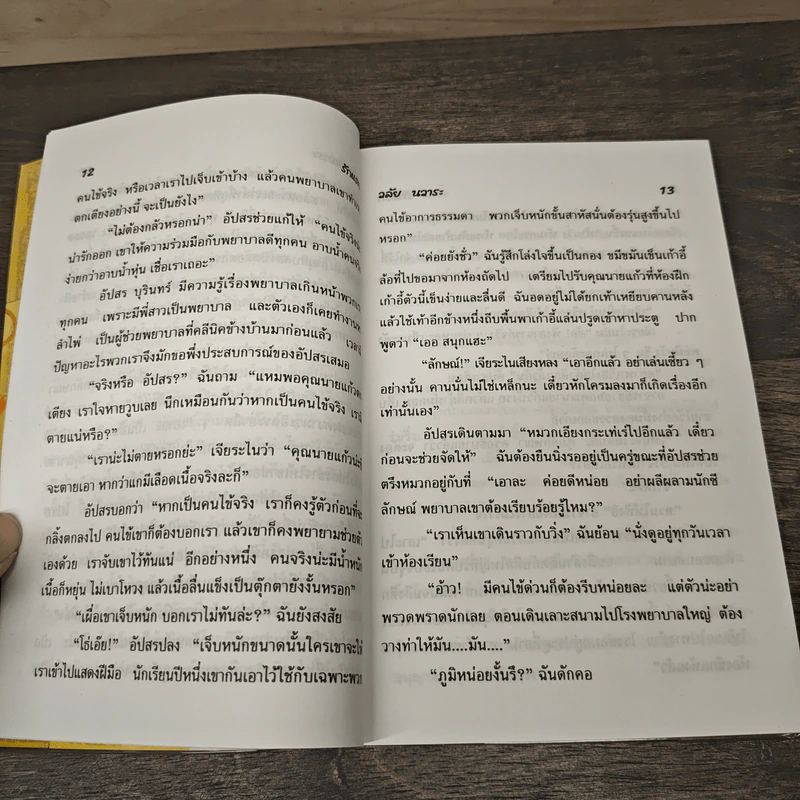 12
คนไข้จริง หรือเวลาเราไปเจ็บเข้าบ้าง แล้วคนพยาบาลเขาทำเรา
ตกเตียงอย่างนี้ จะเป็นยังไง"
"ไม่ต้องกลัวหรอกน่า" อัปสรช่วยแก้ให้ "คนไข้จริงน่ะ
น่ารักออก เขาให้ความร่วมมือกับพยาบาลดีทุกคน อาบน้ำคนจริง
ง่ายกว่าอาบน้ำหุ่น เชื่อเราเถอะ"
อัปสร บุรินทร์ มีความรู้เรื่องพยาบาลเกินหน้าพวกเรา
ทุกคน เพราะมีพี่สาวเป็นพยาบาล และตัวเองก็เคยทำงาน
ลำไพ่ เป็นผู้ช่วยพยาบาลที่คลีนิคข้างบ้านมาก่อนแล้ว
ปัญหาอะไรพวกเราจึงมักขอพึ่งประสบการณ์ของอัปสรเสมอ
"จริงหรือ อัปสร?" ฉันถาม "แหมพอคุณนายแก้วตก
เตียง เราใจหายวูบเลย นึกเหมือนกันว่าหากเป็นคนไข้จริง
ตายแน่หรือ?"
"เราน่ะไม่ตายหรอกย่ะ" เจียระไนว่า "คุณนายแก้วน่ะ
จะตายเอา หากว่าแกมีเลือดเนื้อจริงละก็"
อัปสรบอกว่า "หากเป็นคนไข้จริง เราก็คงรู้ตัวก่อนที่จะ
กลิ้งตกลงไป คนไข้เขาก็ต้องบอกเรา แล้วเขาก็คงพยายามช่วยตัว
เองด้วย เราจับเขาไว้ทันแน่ อีกอย่างหนึ่ง คนจริงน่ะมีน้ำหนัก
เนื้อก็หยุ่น ไม่เบาโหวง แล้วเนื้อลื่นแข็งเป็นตุ๊กตายังงั้นหรอก"
"เผื่อเขาเจ็บหนัก บอกเราไม่ทันล่ะ?" ฉันยังสงสัย
"โธ่เอ๊ย!" อัปสรปลง "เจ็บหนักขนาดนั้นใครเขาจะให้
เราเข้าไปแสดงฝีมือ นักเรียนปีหนึ่งเขากันเอาไว้ใช้กับเฉพาะพวก
วลัย นวาระ
13
คนไข้อาการธรรมดา พวกเจ็บหนักขั้นสาหัสนั่นต้องรุ่นสูงขึ้นไป
หรอก"
"ค่อยยังชั่ว" ฉันรู้สึกโล่งใจขึ้นเป็นกอง ขมีขมันเข็นเก้าอี้
ล้อที่ไปขอมาจากห้องถัดไป เตรียมไปรับคุณนายแก้วที่ห้องฝึก
เก้าอี้ตัวนี้เข็นง่ายและลื่นดี ฉันอดอยู่ไม่ได้ยกเท้าเหยียบคานหลัง
แล้วใช้เท้าอีกข้างหนึ่งถีบพื้นพาเก้าอี้แล่นปรูดเข้าหาประตู ปาก
พูดว่า "เออ สนุกแฮะ"
"ลักษณ์!" เจียระไนเสียงหลง "เอาอีกแล้ว อย่าเล่นเซี้ยว ๆ
อย่างนั้น คานนั่นไม่ใช่เหล็กนะ เดี๋ยวหักโครมลงมาก็เกิดเรื่องอีก
เท่านั้นเอง"
อัปสรเดินตามมา "หมวกเอียงกระเท่เร่ไปอีกแล้ว เดี๋ยว
ก่อนจะช่วยจัดให้" ฉันต้องยืนนิ่งรออยู่เป็นครู่ขณะที่อัปสรช่วย
ตรึงหมวกอยู่กับที่ "เอาละ ค่อยดีหน่อย อย่าผลีผลามนักซี
ลักษณ์ พยาบาลเขาต้องเรียบร้อยรู้ไหม?"
"เราเห็นเขาเดินราวกับวิ่ง" ฉันย้อน "นั่งดูอยู่ทุกวันเวลา
เข้าห้องเรียน"
"อ้าว! มีคนไข้ด่วนก็ต้องรีบหน่อยละ แต่ตัวน่ะอย่า
พรวดพราดนักเลย ตอนเดินเลาะสนามไปโรงพยาบาลใหญ่ ต้อง
วางท่าให้มัน....มัน...."
"ภูมิหน่อยงั้นรึ?" ฉันดักคอ